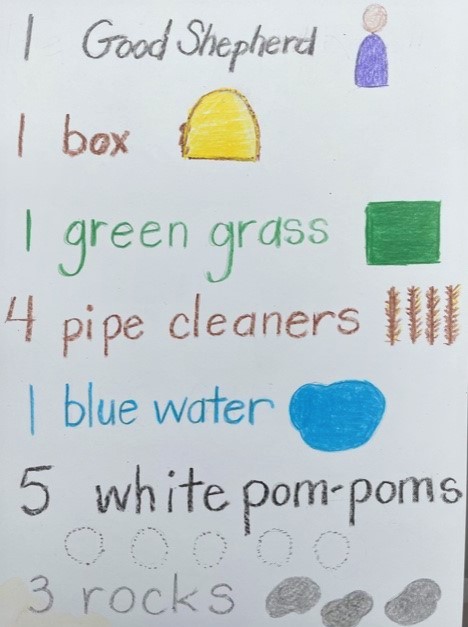 1 Good Shepherd
1 box
1 green grass
4 pipe cleaners
1 blue water
5 white pom-poms
3 rocks